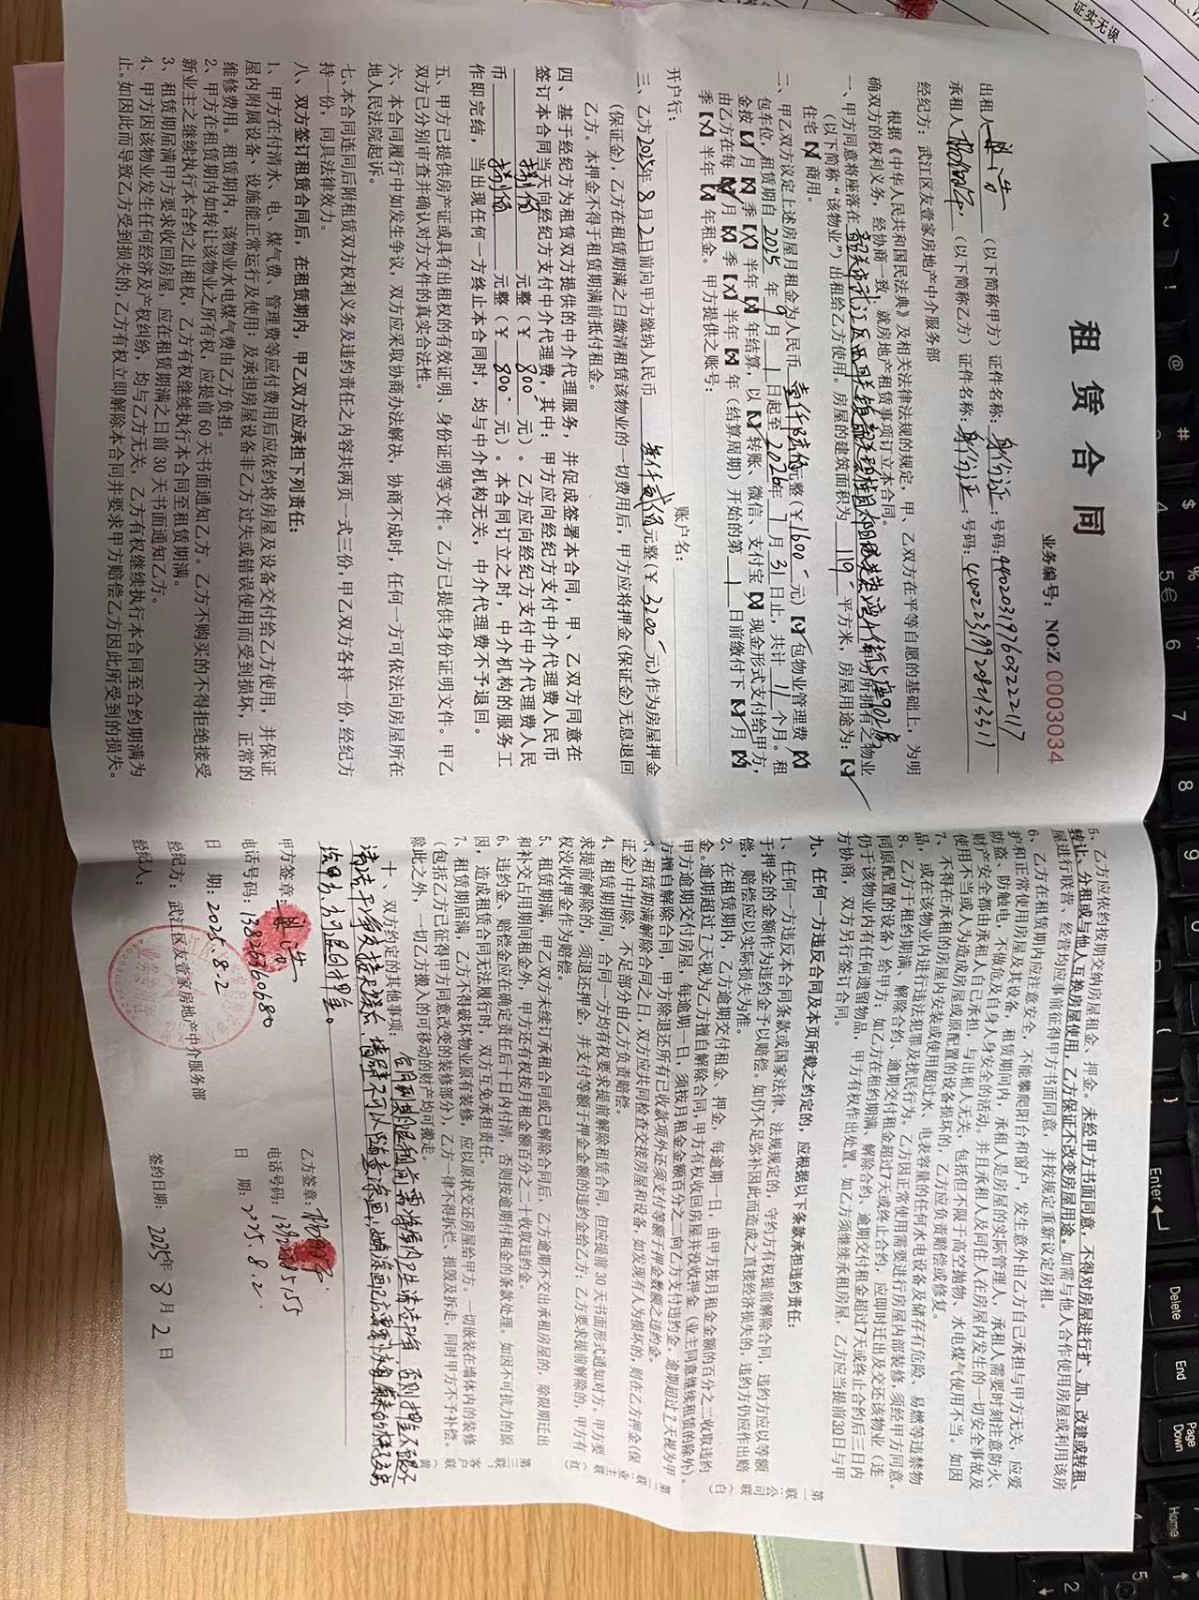 证实无误
租赁合同
业务编号：NO:Z 0003034
出租人 （以下简称甲方）证件名称：身份证 号码：
承租人 （以下简称乙方）证件名称：身份证 号码：
经纪方：武江区友壹家房地产中介服务部
根据《中华人民共和国民法典》及相关法律法规的规定，甲、乙双方在平等自愿的基础上，为明
确双方的权利义务，经协商一致，就房地产租赁事项订立本合同。
一、甲方同意将座落在 韶关市武江区西联镇 房所拥有之物业
（以下简称“该物业”）出租给乙方使用。房屋的建筑面积为 119 平方米，房屋用途为：【✓】
住宅【×】商用。
二、甲乙双方议定上述房屋月租金为人民币 壹仟陆佰元整（￥1600 元）【✓】包物业管理费【×】
包车位，租赁期自 2025 年 9 月 1 日起至 2026 年 7 月 31 日止，共计 11 个月。租
金按【✓】月【×】季【×】半年【×】年结算，以【✓】转账、微信、支付宝【×】现金形式支付给甲方，
由乙方在每【✓】月【×】季【×】半年【×】年（结算周期）开始的第 1 日前缴付下【✓】月【×】
季【×】半年【×】年租金。甲方提供之账号：
开户行： 账户名：
三、乙方2025年 8 月 2 日前向甲方缴纳人民币 叁仟贰佰元整（￥ 3200 元）作为房屋押金
（保证金），乙方在租赁期满之日缴清租赁该物业的一切费用后，甲方应将押金（保证金）无息退回
乙方。本押金不得于租赁期满前抵付租金。
四、基于经纪方为租赁双方提供的中介代理服务，并促成签署本合同，甲、乙双方同意在
签订本合同当天向经纪方支付中介代理费，其中：甲方应向经纪方支付中介代理费人民币
捌佰 元整（￥ 800 元）。乙方应向经纪方支付中介代理费人民
币 捌佰 元整（￥ 800 元）。本合同订立之时，中介机构的服务工
作即完结，当出现任何一方终止本合同时，均与中介机构无关，中介代理费不予退回。
五、甲方已提供房产证或具有出租权的有效证明、身份证明等文件。乙方已提供身份证明文件。甲乙
双方已分别审查并确认对方文件的真实合法性。
六、本合同履行中如发生争议，双方应采取协商办法解决，协商不成时，任何一方可依法向房屋所在
地人民法院起诉。
七、本合同连同后附租赁双方权利义务及违约责任之内容共两页一式三份，甲乙双方各持一份，经纪方
持一份，同具法律效力。
八、双方签订租赁合同后，在租赁期内，甲乙双方应承担下列责任：
1、甲方在付清水、电、煤气费、管理费等应付费用后应依约将房屋及设备交付给乙方使用，并保证
屋内附属设备、设施能正常运行及使用；及承担房屋设备非乙方过失或错误使用而受到损坏，正常的
维修费用。租赁期内，该物业水电煤气费由乙方负担。
2、甲方在租赁期内如转让该物业之所有权，应提前 60 天书面通知乙方。乙方不购买的不得拒绝接受
新业主之继续执行本合约之出租权，乙方有权继续执行本合同至租赁期满。
3、租赁期届满甲方要求收回房屋，应在租赁期满之日前 30 天书面通知乙方。
4、甲方因该物业发生任何经济及产权纠纷，均与乙方无关，乙方有权继续执行本合同至合约期满为
止。如因此而导致乙方受到损失的，乙方有权立即解除本合同并要求甲方赔偿乙方因此所受到的损失。
5、乙方应依约按期交纳房屋租金、押金。未经甲方书面同意，不得对房屋进行扩、加、改建或转租、
转让、分租或与他人互换房屋使用，乙方保证不改变房屋用途。如需与他人合作使用房屋或利用该房
屋进行联营、经营均应事前征得甲方书面同意，并按规定重新议定房租。
6、乙方在租赁期内应注意安全，不能攀爬阳台和窗户，发生意外由乙方自己承担与甲方无关，应爱
护和正常使用房屋及其设备，租赁期间内，承租人是房屋的实际管理人，承租人需要时刻注意防火、
防盗、防触电，不做危及自身人身安全的活动，并且承租人及同住人在房屋内发生的一切安全事故及
财产安全都由承租人自己承担，与出租人无关，包括但不限于高空抛物、水电煤气使用不当。如因
使用不当或人为造成房屋或原配置的设备损坏的，乙方应负责赔偿或修复。
7、不得在承租的房屋内安装或使用超过水、电表容量的任何水电设备及储存有危险，易燃等违禁物
品，或在该物业内进行违法犯罪及扰民行为。乙方因正常使用需要进行房屋内部装修，须经甲方同意。
8、乙方于租约期满，解除合约，逾期交付租金超过7天或终止合约，应即时迁出及交还该物业（连
同原配置的设备）给甲方；如乙方在租约期满、解除合约、逾期交付租金超过7天或终止合约后三日内
仍于该物业内有任何遗留物品，甲方有权作出处置。如乙方须继续承租房屋，乙方应当提前30日与甲
方协商，双方另行签订合同。
九、任何一方违反合同及本页所载之约定的，应根据以下条款承担违约责任：
1、任何一方违反本合同条款或国家法律、法规规定的，守约方有权提前解除合同，违约方应以等额
于押金的金额作为违约金予以赔偿。如仍不足弥补因此而造成之直接经济损失的，违约方仍应作出赔
偿，赔偿应以实际损失为准。
2、在租赁期内，乙方逾期交付租金、押金，每逾期一日，由甲方按月租金金额的百分之二收取违约
金。逾期超过 7 天视为乙方擅自解除合同，甲方有权收回房屋并没收押金（业主同意继续租赁的除外）。
甲方逾期交付房屋，每逾期一日，须按月租金金额百分之二向乙方支付违约金。逾期超过 7 天视为甲
方擅自解除合同，甲方除退还所有已收款项外还须支付等额于押金数额之违约金。
3、租赁期满解除合同之日，双方应共同检查交接房屋和设备，如发现有人为损坏的，则在乙方押金（保
证金）中扣除，不足部分由乙方负责赔偿。
4、租赁期期间，合同一方均有权要求提前解除租赁合同，但应提前 30 天书面形式通知对方；甲方要
求提前解除的，须退还押金，并支付等额于押金金额的违约金给乙方；乙方要求提前解除的，甲方有
权没收押金作为赔偿。
5、租赁期满，甲乙双方未续订承租合同或已解除合同后，乙方逾期不交出承租房屋的，除限期迁出
和补交占用期间租金外，甲方还有权按月租金额百分之二十收取违约金。
6、违约金、赔偿金应在确定责任后十日内付清，否则按逾期付租金的条款处理。如因不可抗力的原
因，造成租赁合同无法履行时，双方互免承担责任。
7、租赁期届满，乙方不得破坏物业原有装修，应以原状交还房屋给甲方。一切嵌装在墙体内的装修
（包括乙方已征得甲方同意改变的装修部分），乙方一律不得拆拦、损毁及拆走，同时甲方不予补偿。
除此之外，一切乙方搬入的可移动的财产均可搬走。
十、双方约定的其他事项： 合同到期退租前需将屋内卫生清洁干净，否则押金不予
清洁干净交接完
给甲方，方可退回押金。
甲方签章：
电话号码：
日 期：2025.8.2
经纪方：武江区友壹家房地产中介服务部
经纪人：
乙方签章：
电话号码：
日 期：2025.8.2.
签约日期：2025年 8 月 2 日
第一联 公司（白）
第二联 业主（红）
第三联 客户（黄）